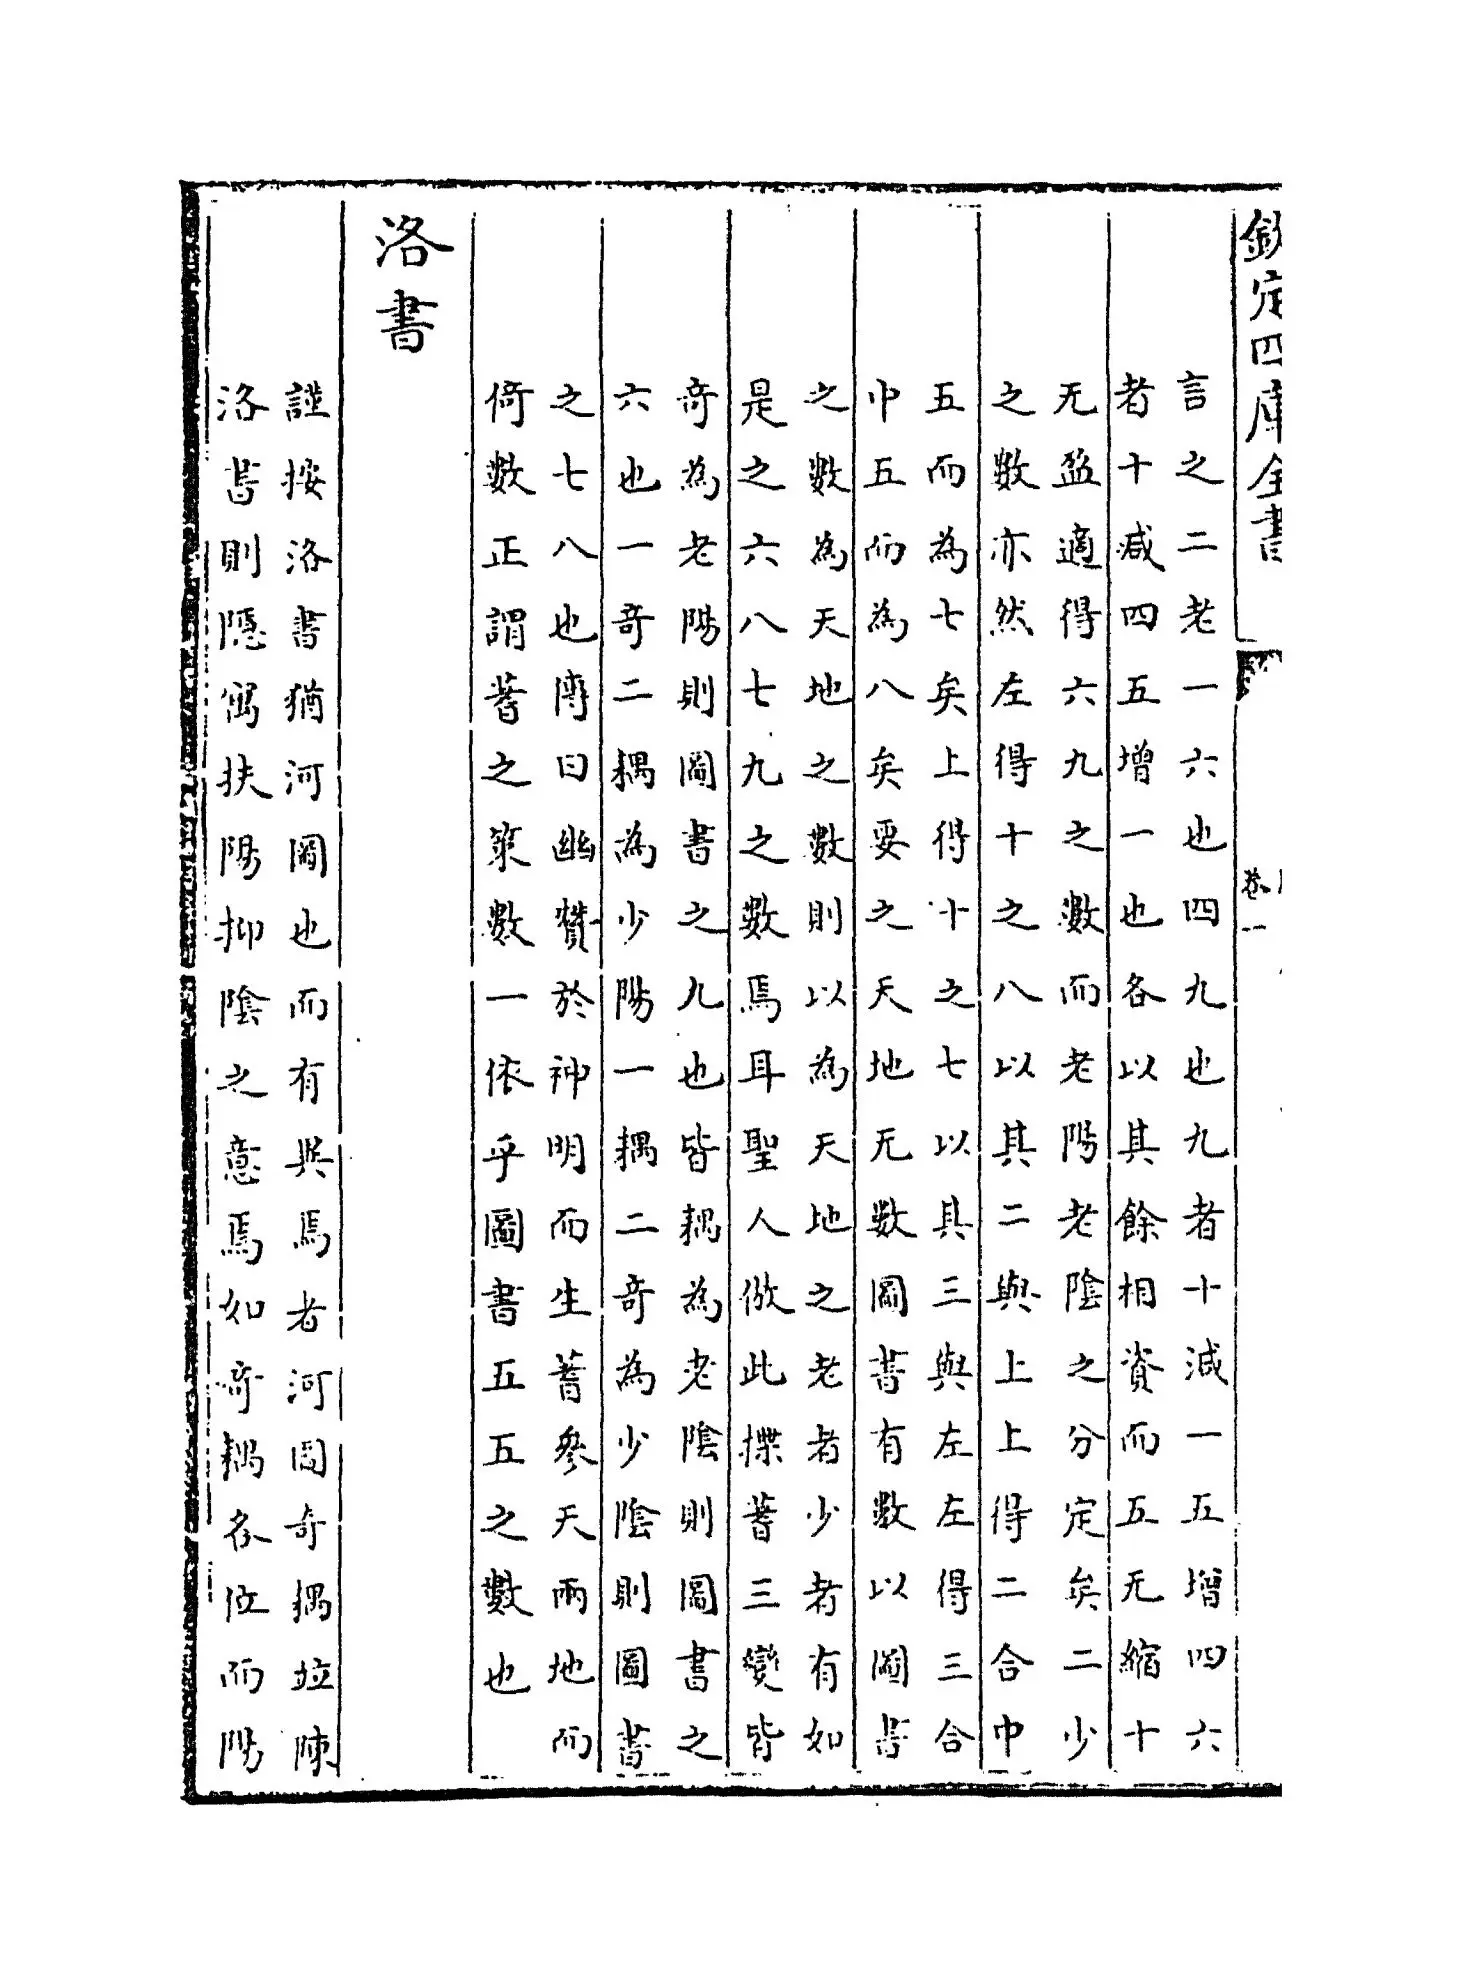 欽定四庫全書
卷一
言之二老一六也四九也九者十減一五增四六
者十减四五增一也各以其餘相資而五无縮十
无盈適得六九之數而老陽老陰之分定矣二少
之數亦然左得十之八以其二與上上得二合中
五而為七矣上得十之七以其三與左左得三合
中五而為八矣要之天地无數圖書有數以圖書
之數為天地之數則以為天地之老者少者有如
是之六八七九之數焉耳聖人倣此揲蓍三變皆
奇為老陽則圖書之九也皆耦為老陰則圖書之
六也一奇二耦為少陽一耦二奇為少陰則圖書
之七八也傳曰幽贊於神明而生蓍參天兩地而
倚數正謂蓍之策數一依乎圖書五五之數也
洛書
謹按洛書猶河圖也而有異焉者河圖奇耦竝陳
洛書則隱寓扶陽抑陰之意焉如奇耦各位而陽